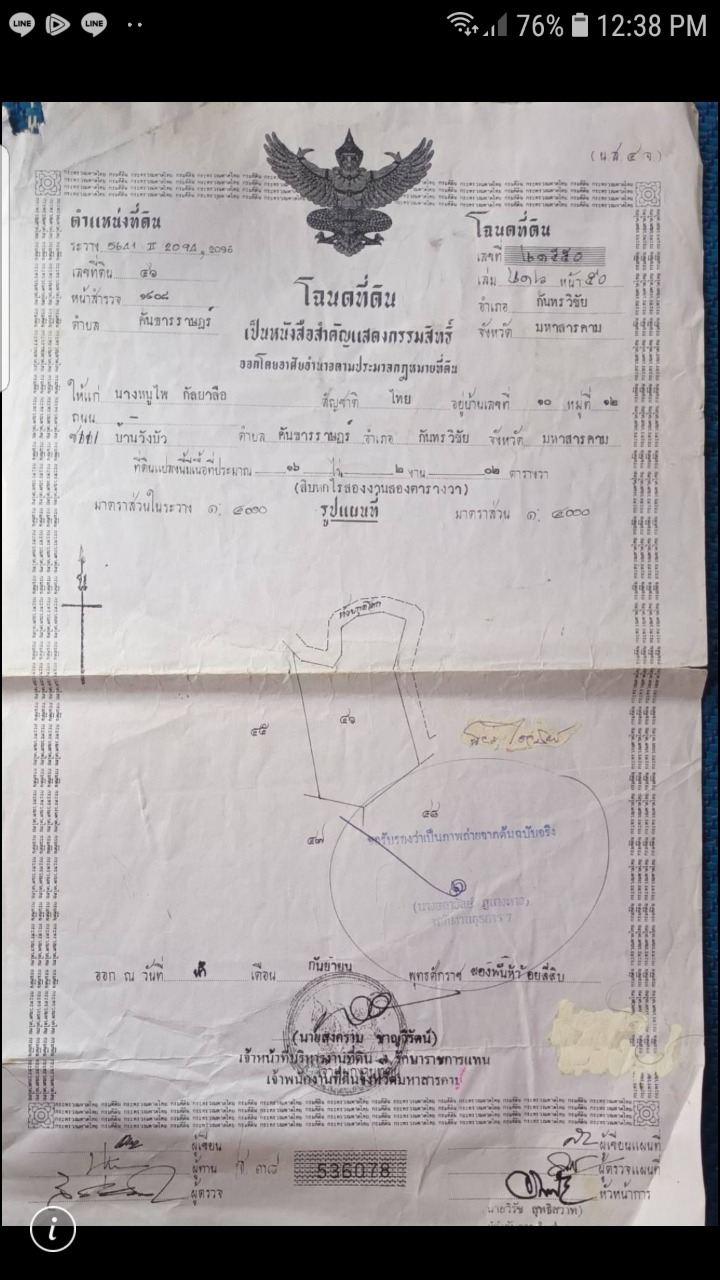 76% 12:38 PM
(น.ส. ๔ จ.)
ตำแหน่งที่ดิน
ระวาง 5641 II 2094, 2096
เลขที่ดิน ๔๖
หน้าสำรวจ ๑๔๐๘
ตำบล คันธารราษฎร์
โฉนดที่ดิน
เลขที่ ๒๑๕๕๐
เล่ม ๒๑๖ หน้า ๕๐
อำเภอ กันทรวิชัย
จังหวัด มหาสารคาม
โฉนดที่ดิน
เป็นหนังสือสำคัญแสดงกรรมสิทธิ์
ออกโดยอาศัยอำนาจตามประมวลกฎหมายที่ดิน
ให้แก่ นางหนูไพ กัลยาลือ สัญชาติ ไทย อยู่บ้านเลขที่ ๑๐ หมู่ที่ ๑๒
ถนน
บ้านวังบัว ตำบล คันธารราษฎร์ อำเภอ กันทรวิชัย จังหวัด มหาสารคาม
ที่ดินแปลงนี้มีเนื้อที่ประมาณ ๑๖ ไร่ ๒ งาน ๐๒ ตารางวา
(สิบหกไร่สองงานสองตารางวา)
มาตราส่วนในระวาง ๑: ๔๐๐๐ รูปแผนที่ มาตราส่วน ๑: ๔๐๐๐
น
๔๕
๔๖
๔๗
๔๘
ขอรับรองว่าเป็นภาพถ่ายจากต้นฉบับจริง
ออก ณ วันที่ เดือน กันยายน พุทธศักราช สองพันห้าร้อยสี่สิบ
(นายสงคราม ชาญวิรัตน์)
เจ้าหน้าที่บริหารงานที่ดิน ๘ รักษาราชการแทน
เจ้าพนักงานที่ดินจังหวัดมหาสารคาม
ผู้เขียน
ผู้ทาน
ผู้ตรวจ
536078
ผู้เขียนแผนที่
ผู้ตรวจแผนที่
หัวหน้าการ
(นายวิรัช สุทธิสวาท)